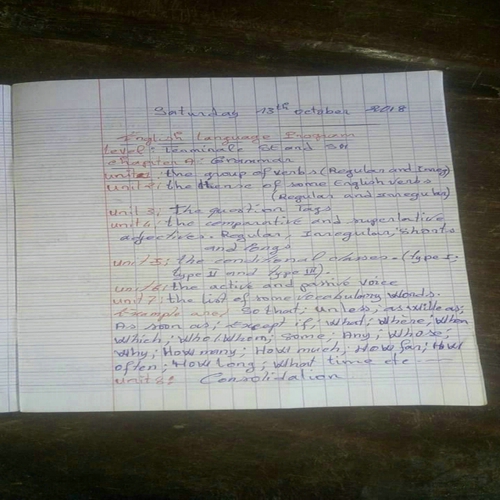 Saturday 13th october 2018
English Language Program
Level: Terminale SE and SM
chapter 1: Grammar
unit 1: the group of verbs (Regular and Irreg)
unit 2: the tense of some English verbs
(Regular and irregular)
Unit 3: The question Tags
unit 4: the comparative and superlative
adjectives. Regular, Irregular, Shorts
and longs
unit 5: the conditional clauses - (type I,
type II and type III).
unit 6: the active and passive voice
unit 7: the list of some vocabulary words.
Example are: So that; unless; as
As soon as; Except if; What; Where; When
Which; Who/Whom; Some; Any; Whose;
Why; How many; How much; How far; How
often; How long; What time etc
unit 8: Consolidation